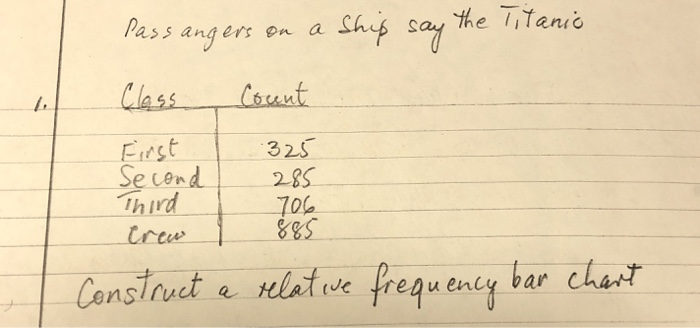 Passangers on a Ship say the Titanic
1. Class Count
First 325
Second 285
Third 706
Crew 885
Construct a relative frequency bar chart